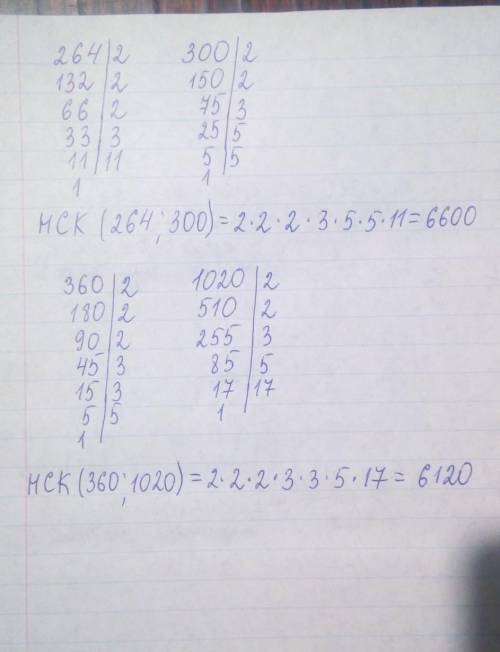 264|2 300|2
132|2 150|2
66|2 75|3
33|3 25|5
11|11 5|5
1 1
НСК (264; 300) = 2·2·2·3·5·5·11=6600
360|2 1020|2
180|2 510|2
90|2 255|3
45|3 85|5
15|3 17|17
5|5 1
1
НСК (360; 1020) = 2·2·2·3·3·5·17 = 6120